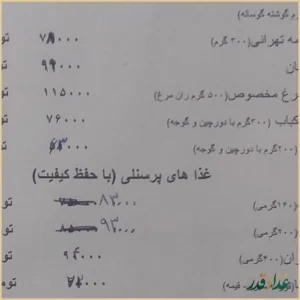 م گوشته گوساله)
مه تهرانی(۳۰۰ گرم) ۷۸۰۰۰ تو
ان ۹۹۰۰۰
رغ مخصوص(۵۰۰ گرم ران مرغ) ۱۱۵۰۰۰ تو
کباب (۳۰۰گرم با دورچین و گوجه) ۷۶۰۰۰ تو
(۲۰۰گرم با دورچین و گوجه) ۶۳۰۰۰ تو
غذا های پرسنلی (با حفظ کیفیت)
۱۴۰گرمی) ۸۳۰۰۰ تو
(۲۰۰گرمی) ۹۳۰۰۰ تو
ران(۴۰۰گرمی) تو
قیمه) توم
غذا قدر